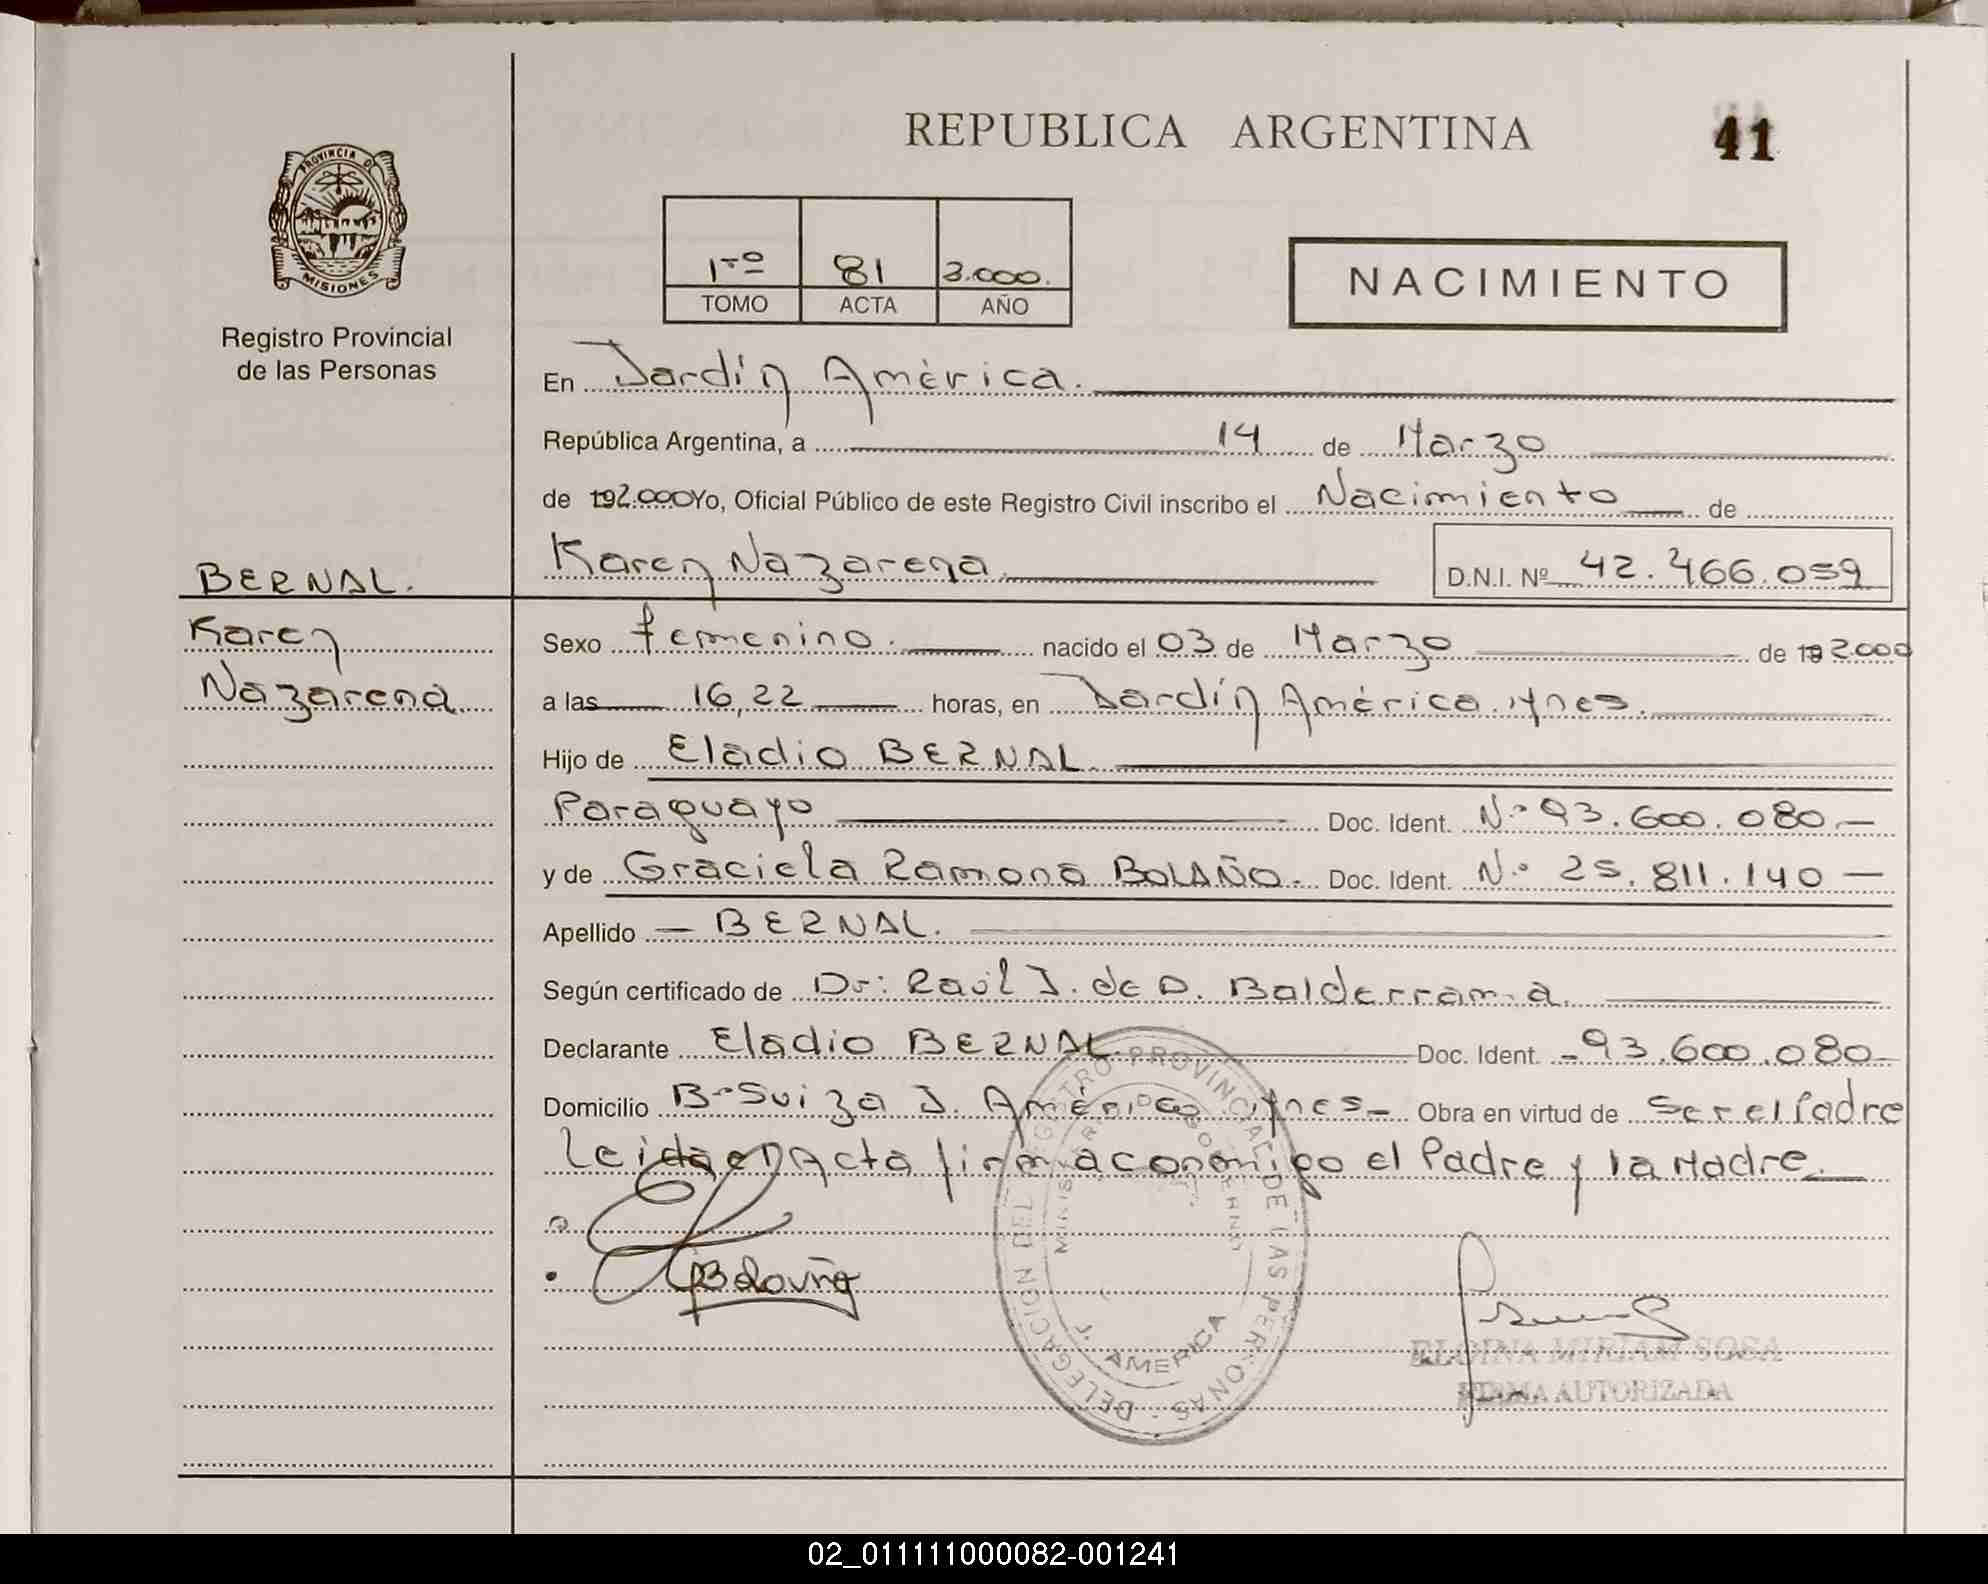 REPUBLICA ARGENTINA
41
PROVINCIA D
MISIONES
Registro Provincial
de las Personas
1ro 81 2.000.
TOMO ACTA AÑO
NACIMIENTO
En Jardín América.
República Argentina, a 14 de Marzo
de 192.000 Yo, Oficial Público de este Registro Civil inscribo el Nacimiento de
Karen Nazarena D.N.I. Nº 42.466.059
BERNAL.
Karen
Nazarena.
Sexo femenino. nacido el 03 de Marzo de 19 2000
a las 16,22 horas, en Jardín América. Mnes.
Hijo de Eladio BERNAL.
Paraguayo Doc. Ident. N.º 93.600.080.—
y de Graciela Ramona BOLAÑO. Doc. Ident. N.º 25.811.140 —
Apellido — BERNAL.
Según certificado de Dr: Raúl J. de D. Balderrama.
Declarante Eladio BERNAL. Doc. Ident. -93.600.080-
Domicilio Bº Suiza J. América Mnes- Obra en virtud de Ser el Padre
Leida en Acta firma conmigo el Padre y la Madre.
DELEGACION DEL REGISTRO PROVINCIAL DE LAS PERSONAS
MINISTERIO DE GOBIERNO
J. AMERICA
ELOINA MIRIAM SOSA
FIRMA AUTORIZADA
02_011111000082-001241